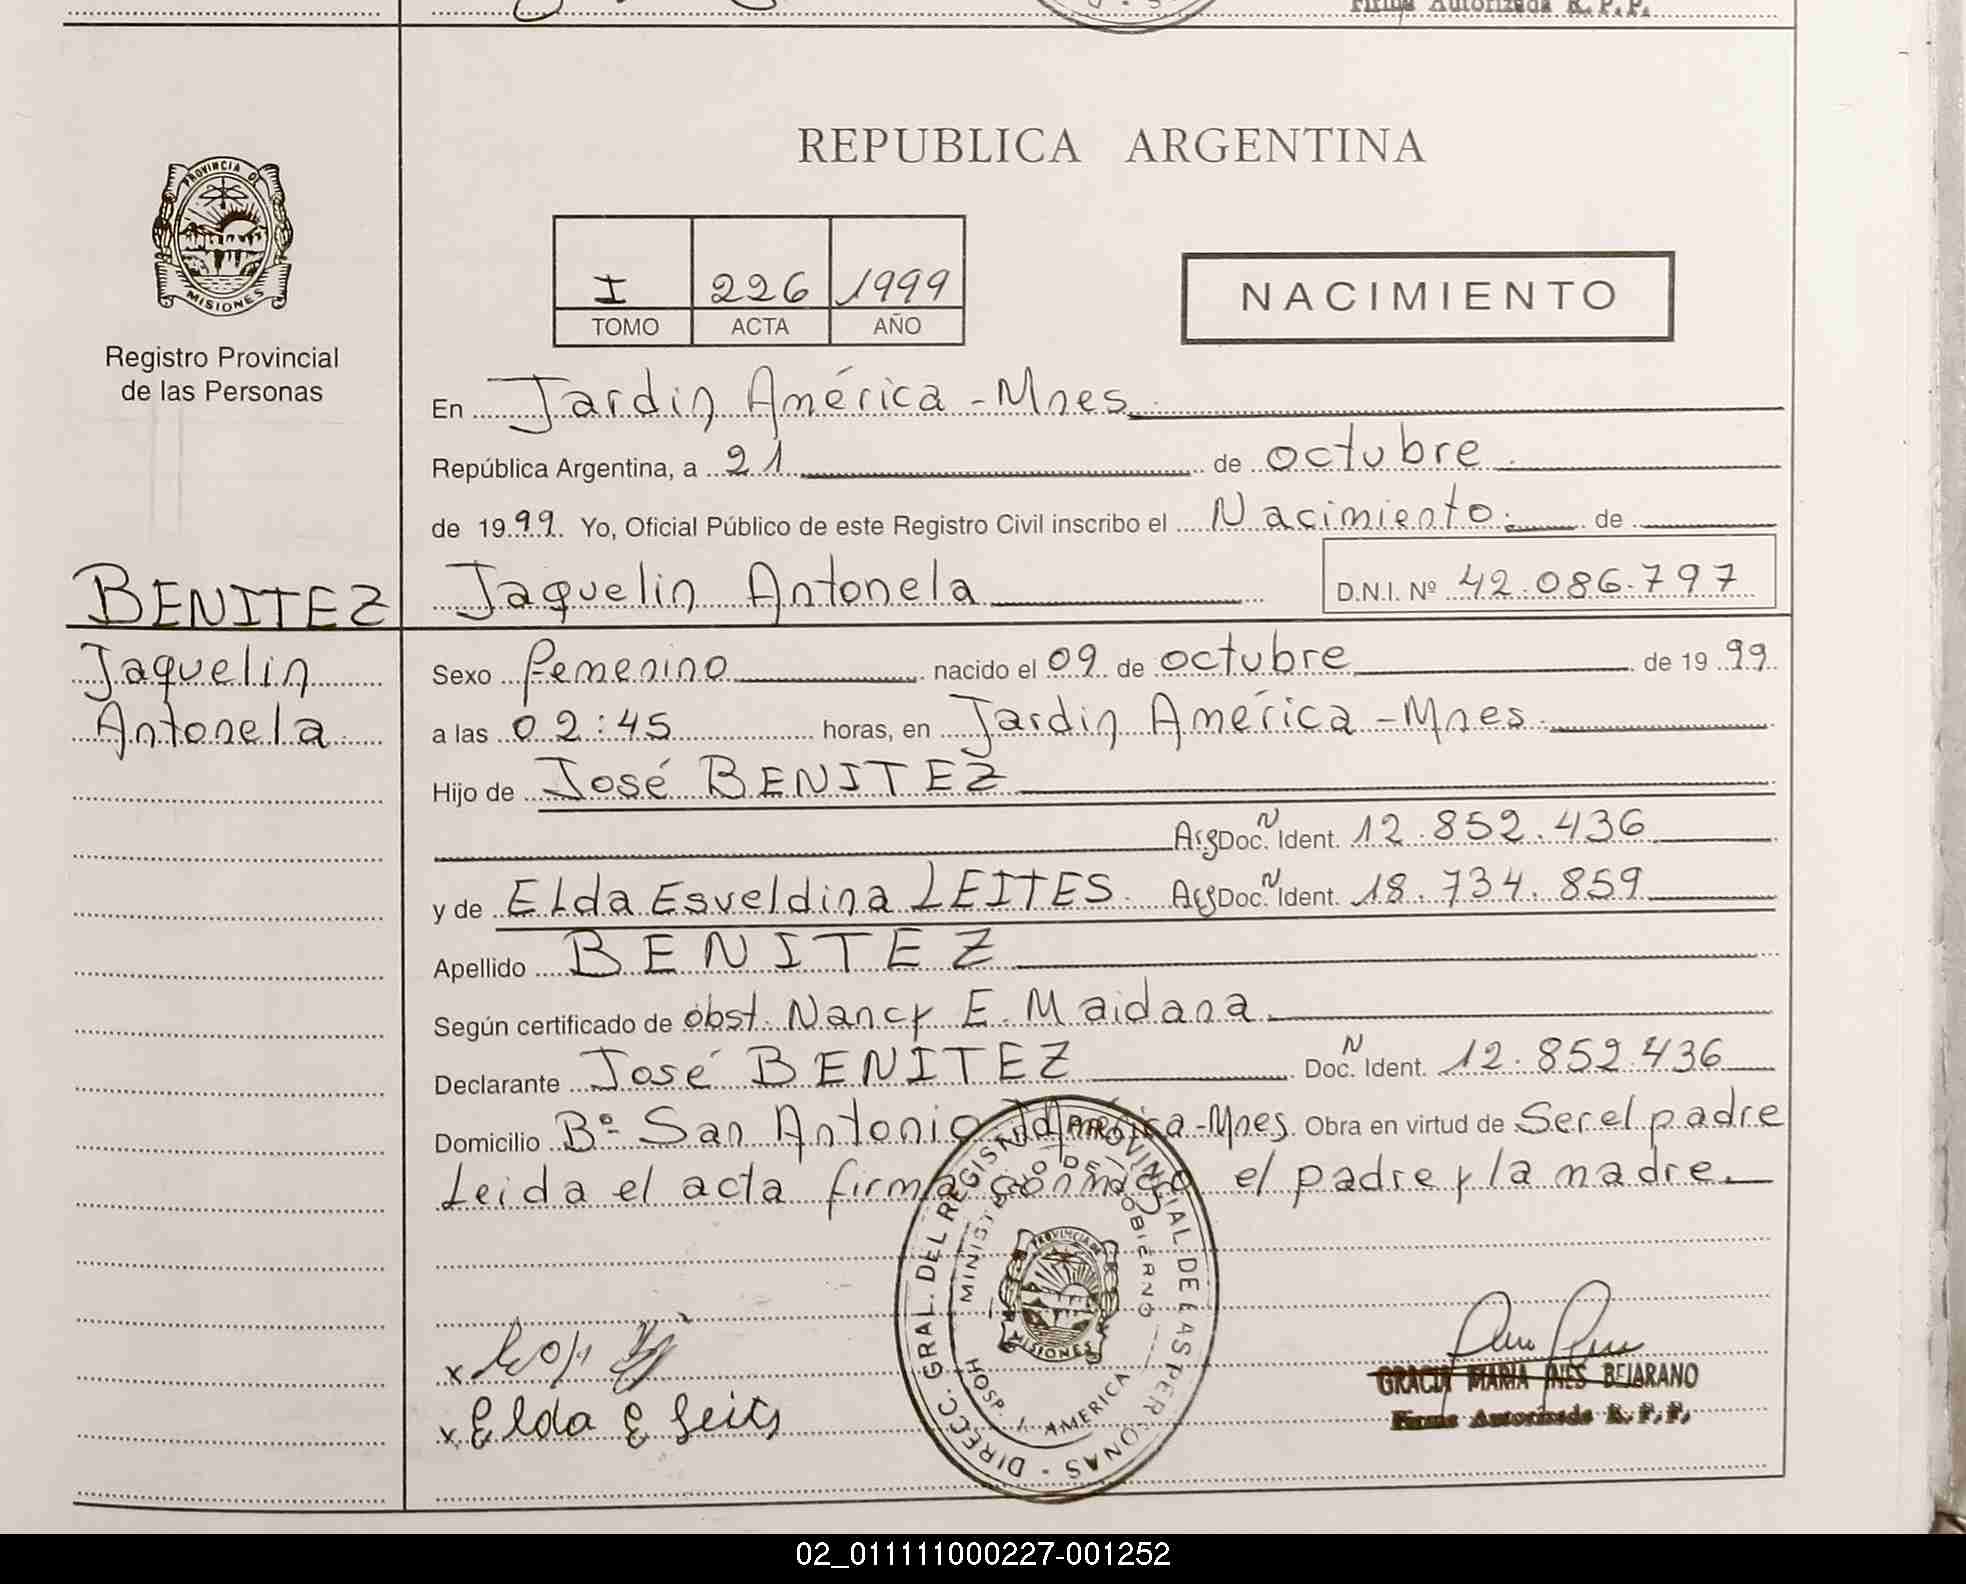 Firma Autorizada R.P.P.
REPUBLICA ARGENTINA
PROVINCIA DE
MISIONES
Registro Provincial
de las Personas
I 226 1999
TOMO ACTA AÑO
NACIMIENTO
En Jardin América - Mnes.
República Argentina, a 21 de octubre
de 1999. Yo, Oficial Público de este Registro Civil inscribo el Nacimiento. de
BENITEZ Jaquelin Antonela D.N.I. Nº 42.086.797
Jaquelin
Antonela
Sexo femenino nacido el 09 de octubre de 1999
a las 02:45 horas, en Jardin América - Mnes.
Hijo de José BENITEZ
Arg Doc. N Ident. 12.852.436
y de Elda Esveldina LEITES. Arg Doc. N Ident. 18.734.859
Apellido BENITEZ
Según certificado de obst. Nancy E. Maidana
Declarante José BENITEZ Doc. N Ident. 12.852.436
Domicilio Bº San Antonio América - Mnes. Obra en virtud de Ser el padre
Leida el acta firma conmigo el padre y la madre.
DIRECC. GRAL. DEL REGISTRO PROVINCIAL DE LAS PERSONAS
MINISTERIO DE GOBIERNO
PROVINCIA DE
MISIONES
HOSP. J. AMERICA
x
x Elda E Leits
GRACIA MARIA INES BEJARANO
Firma Autorizada R.P.P.
02_011111000227-001252